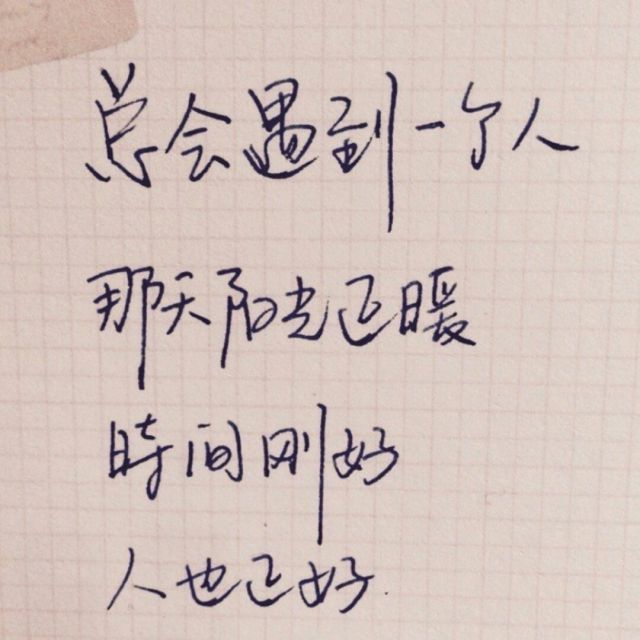 总会遇到一个人
那天阳光正暖
時间刚好
人也正好.